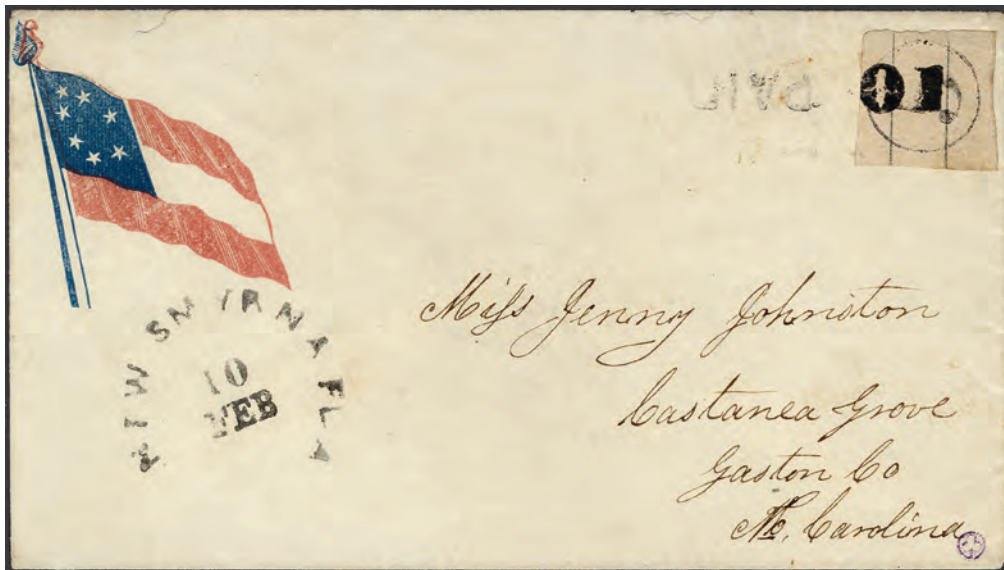 PAID
10
NEW SMYRNA FLA
10
FEB
Miss Jenny Johnston
Castanea Grove
Gaston Co
No. Carolina